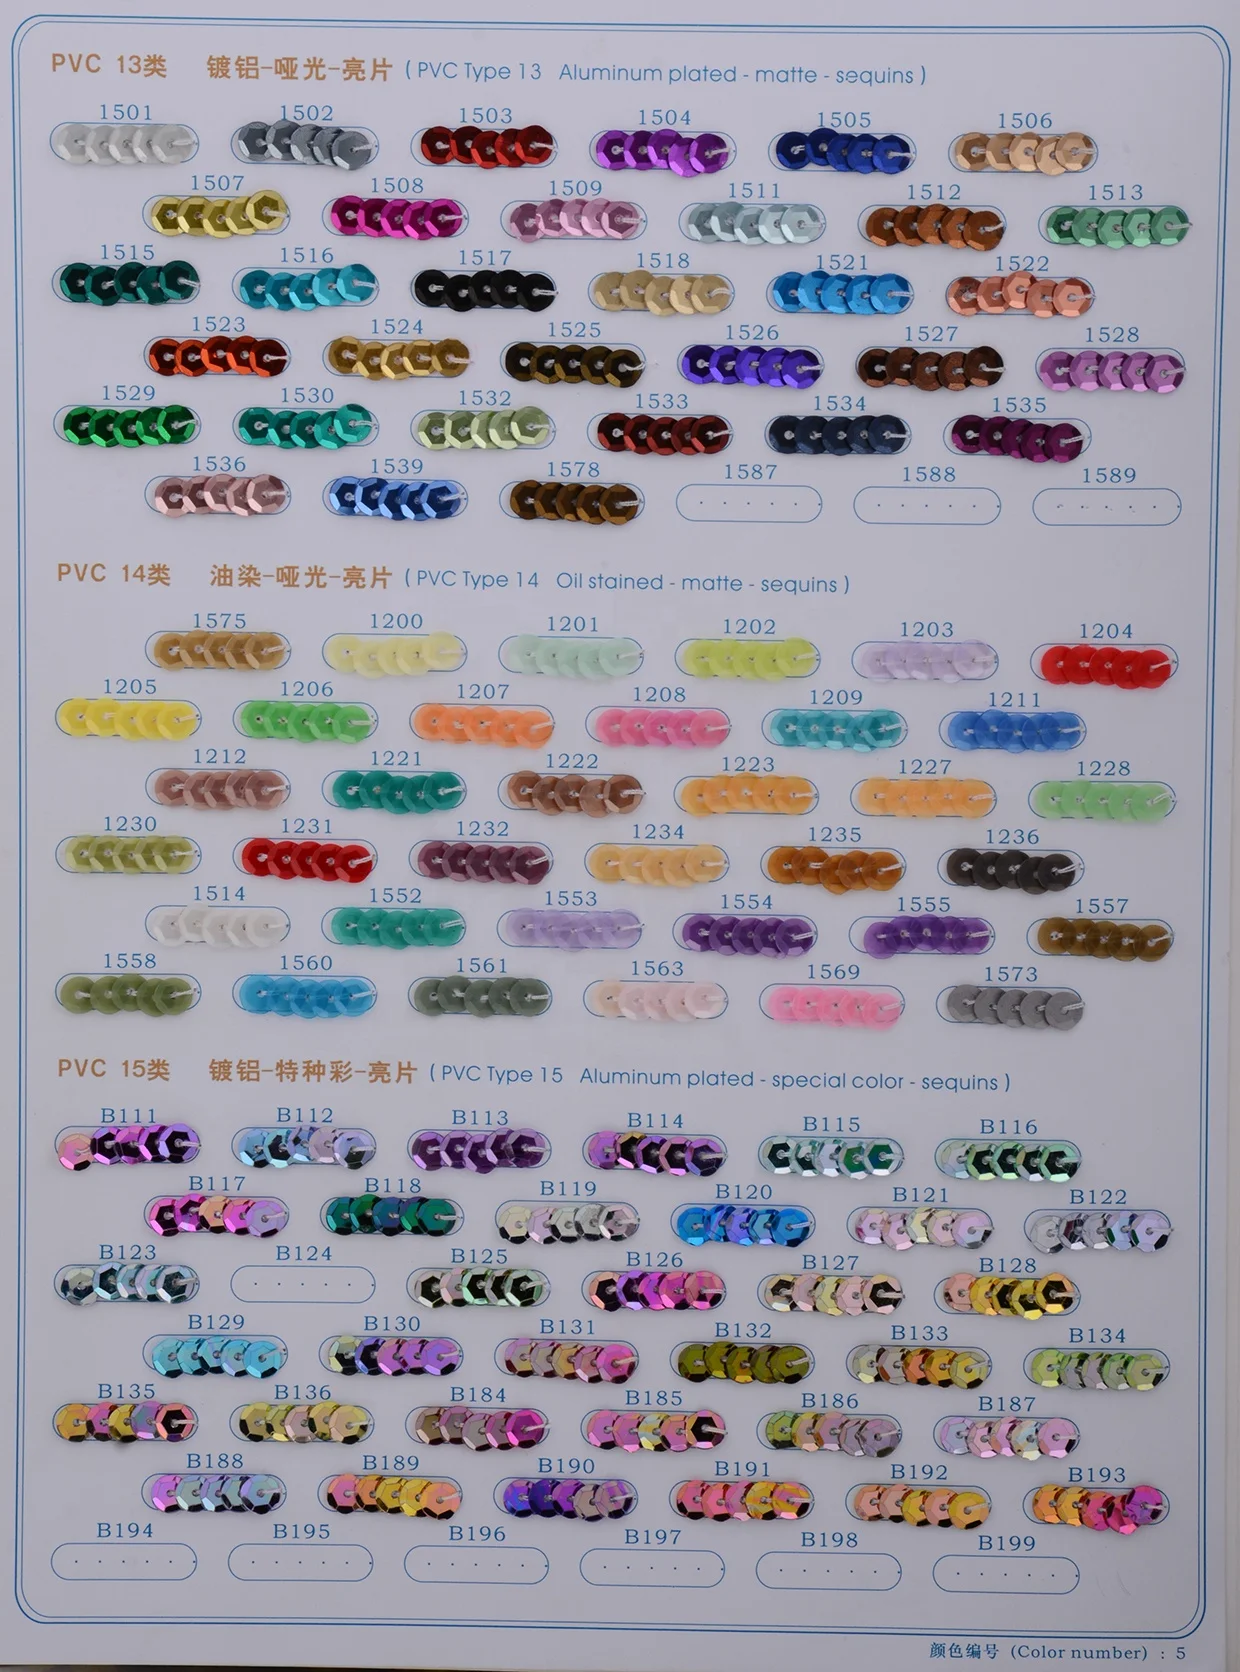 PVC 13类 镀铝-哑光-亮片 ( PVC Type 13 Aluminum plated - matte - sequins )
1501 1502 1503 1504 1505 1506
1507 1508 1509 1511 1512 1513
1515 1516 1517 1518 1521 1522
1523 1524 1525 1526 1527 1528
1529 1530 1532 1533 1534 1535
1536 1539 1578 1587 1588 1589
PVC 14类 油染-哑光-亮片 ( PVC Type 14 Oil stained - matte - sequins )
1575 1200 1201 1202 1203 1204
1205 1206 1207 1208 1209 1211
1212 1221 1222 1223 1227 1228
1230 1231 1232 1234 1235 1236
1514 1552 1553 1554 1555 1557
1558 1560 1561 1563 1569 1573
PVC 15类 镀铝-特种彩-亮片 ( PVC Type 15 Aluminum plated - special color - sequins )
B111 B112 B113 B114 B115 B116
B117 B118 B119 B120 B121 B122
B123 B124 B125 B126 B127 B128
B129 B130 B131 B132 B133 B134
B135 B136 B184 B185 B186 B187
B188 B189 B190 B191 B192 B193
B194 B195 B196 B197 B198 B199
颜色编号 (Color number) : 5